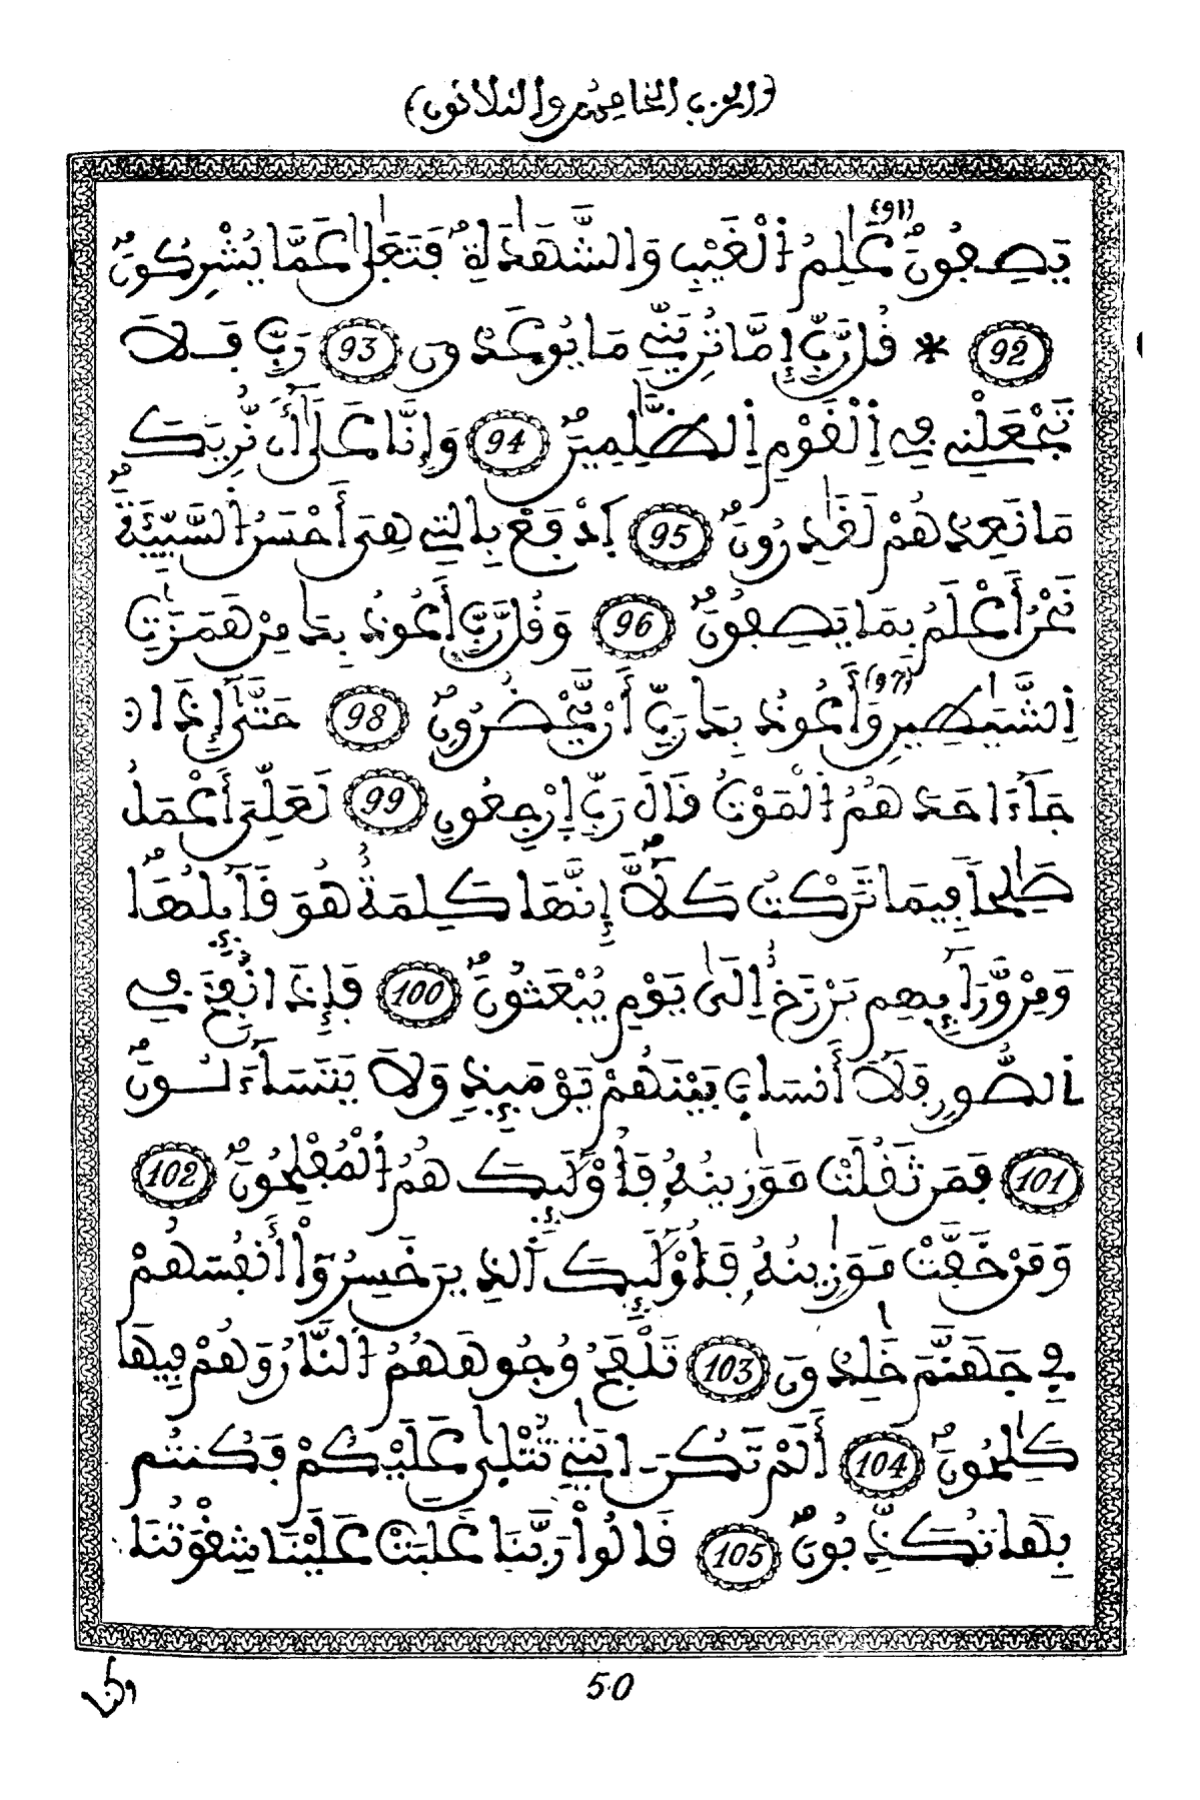 (والحزب الخامس والثلاثون)
يَصِفُونَ (91) عَٰلِمُ اُ۬لْغَيْبِ وَالشَّهَٰدَةِ فَتَعَٰلَىٰ عَمَّا يُشْرِكُونَ
92 * قُل رَّبِّ إِمَّا تُرِيَنِّي مَا يُوعَدُونَ 93 رَبِّ فَلَا
تَجْعَلْنِي فِي اِ۬لْقَوْمِ اِ۬لظَّٰلِمِينَ 94 وَإِنَّا عَلَىٰ أَن نُّرِيَكَ
مَا نَعِدُهُمْ لَقَٰدِرُونَ 95 اَ۪دْفَعْ بِالتِي هِيَ أَحْسَنُ اُ۬لسَّيِّئَةَ
نَحْنُ أَعْلَمُ بِمَا يَصِفُونَ 96 وَقُل رَّبِّ أَعُوذُ بِكَ مِنْ هَمَزَٰتِ
اِ۬لشَّيَٰطِينِ (97) وَأَعُوذُ بِكَ رَبِّ أَنْ يَّحْضُرُونِ 98 حَتَّىٰ إِذَا
جَآءَ احَدَهُمُ اُ۬لْمَوْتُ قَالَ رَبِّ اِ۪رْجِعُونِ 99 لَعَلِّيَ أَعْمَلُ
صَٰلِحاً فِيمَا تَرَكْتُ كَلَّآ إِنَّهَا كَلِمَةٌ هُوَ قَآئِلُهَا
وَمِنْ وَّرَآئِهِم بَرْزَخٌ اِلَىٰ يَوْمِ يُبْعَثُونَ 100 فَإِذَا نُفِخَ فِي
اِ۬لصُّورِ فَلَآ أَنسَابَ بَيْنَهُمْ يَوْمَئِذٍ وَلَا يَتَسَآءَلُونَ
101 فَمَن ثَقُلَتْ مَوَٰزِينُهُۥ فَأُوْلَٰٓئِكَ هُمُ اُ۬لْمُفْلِحُونَ 102
وَمَنْ خَفَّتْ مَوَٰزِينُهُۥ فَأُوْلَٰٓئِكَ اَ۬لذِينَ خَسِرُوٓاْ أَنفُسَهُمْ
فِي جَهَنَّمَ خَٰلِدُونَ 103 تَلْفَحُ وُجُوهَهُمُ اُ۬لنَّارُ وَهُمْ فِيهَا
كَٰلِحُونَ 104 أَلَمْ تَكُنَ ايَٰتِي تُتْلَىٰ عَلَيْكُمْ فَكُنتُم
بِهَا تُكَذِّبُونَ 105 قَالُواْ رَبَّنَا غَلَبَتْ عَلَيْنَا شِقْوَتُنَا
50
وكنا